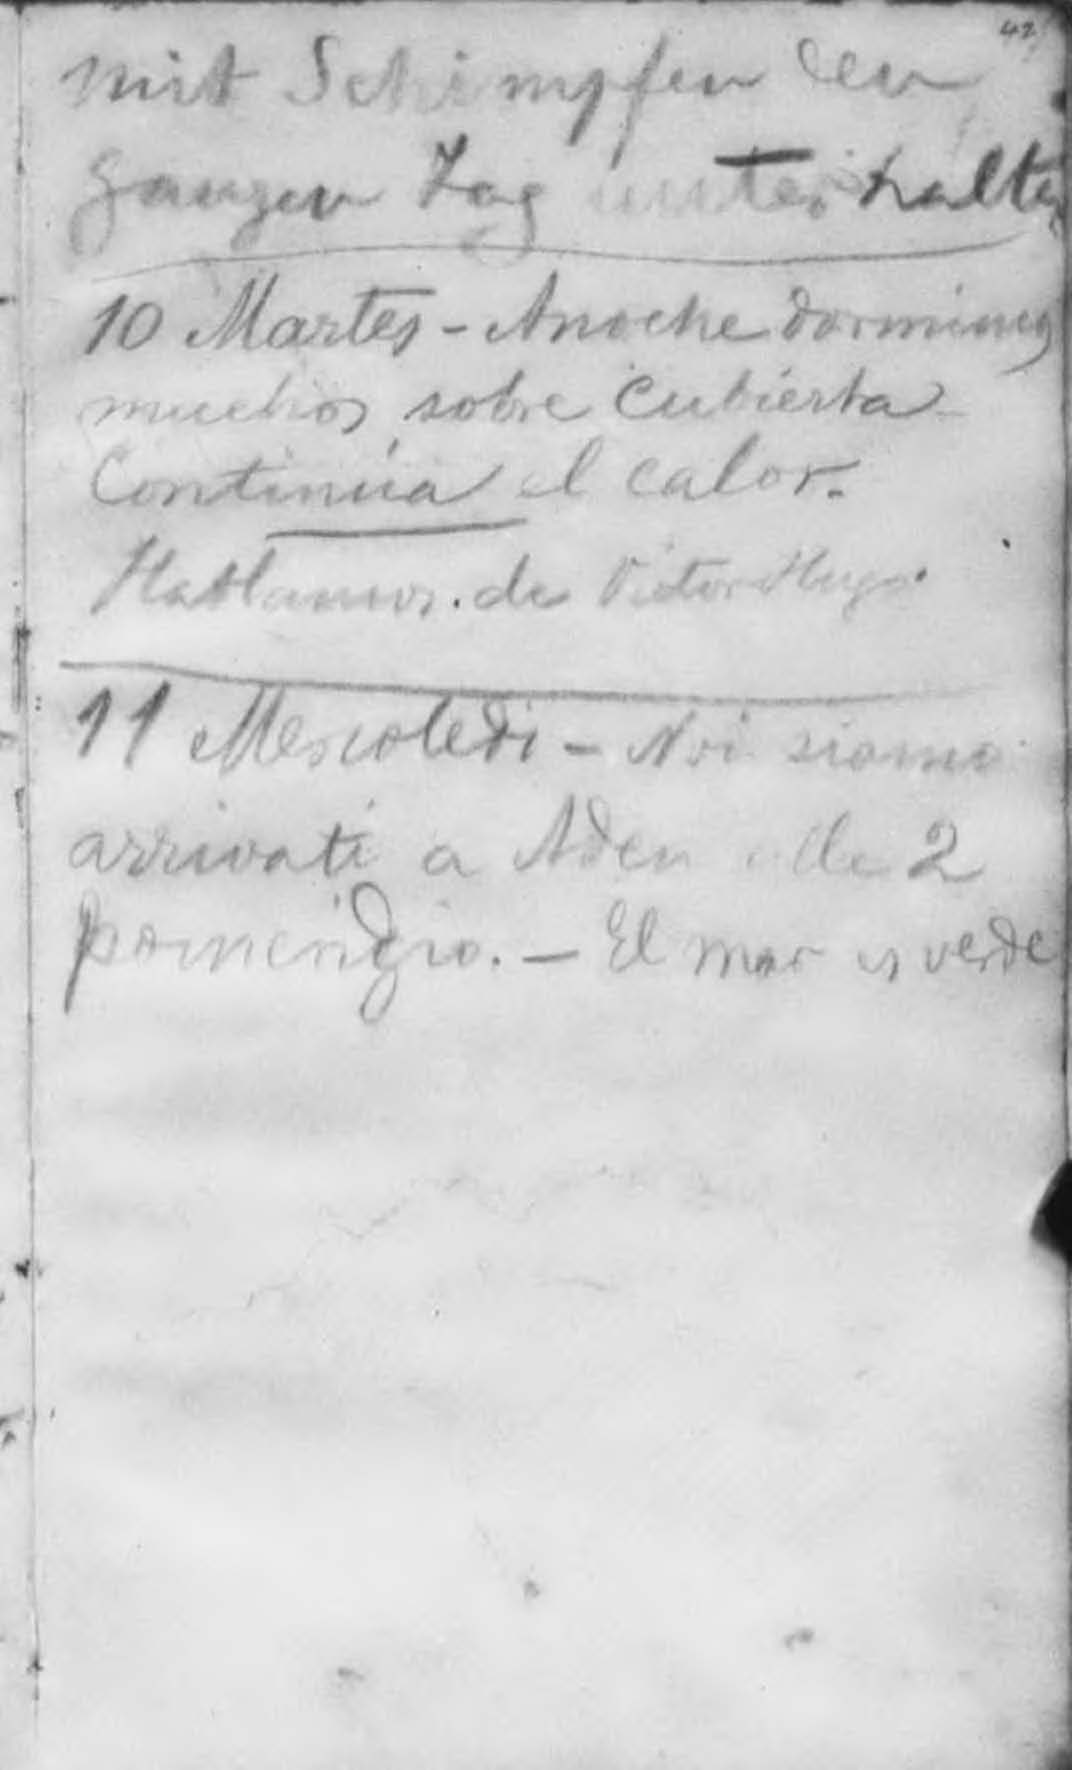 42
mit Schimpfen den
ganzen Tag unterhalten
10 Martes - Anoche dormimos
muchos sobre cubierta -
Continúa el calor.
Hablamos. de Victor Hugo.
11 Mercoledi - Noi siamo
arrivati a Aden alle 2
pomeridgio. - El mar es verde